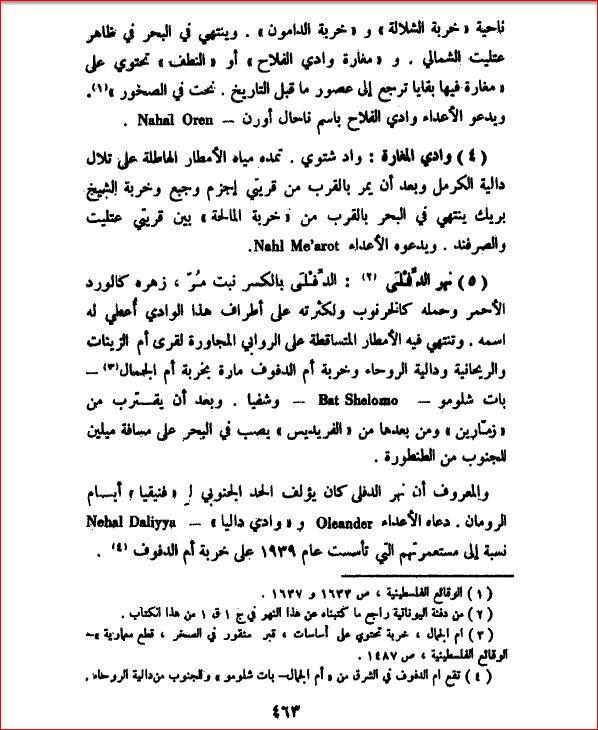 ناحية « خربة الشلالة » و « خربة الدامون » . وينتهي في البحر في ظاهر
عتليت الشمالي . و « مغارة وادي الفلاح » أو « النطف » تحتوي على
« مغارة فيها بقايا ترجع إلى عصور ما قبل التاريخ . نحت في الصخور »(١).
ويدعو الأعداء وادي الفلاح باسم ناحال أورن – Nahal Oren .
( ٤ ) وادي المغارة : واد شتوي . تمده مياه الأمطار الهاطلة على تلال
دالية الكرمل وبعد أن يمر بالقرب من قريتي إجزم وجبع وخربة الشيخ
بريك ينتهي في البحر بالقرب من « خربة المالحة » بين قريتي عتليت
والصرفند . ويدعوه الأعداء Nahl Me'arot.
( ٥ ) نهر الدِّفْلَى (٢) : الدِّفْلَى بالكسر نبت مُرّ ، زهره كالورد
الأحمر وحمله كالخرنوب ولكثرته على أطراف هذا الوادي أُعطي له
اسمه . وتنتهي فيه الأمطار المتساقطة على الروابي المجاورة لقرى أم الزينات
والريحانية ودالية الروحاء وخربة أم الدفوف مارة بخربة أم الجمال(٣) –
بات شلومو – Bat Shelomo – وشفيا . وبعد أن يقترب من
« زمّارين » ومن بعدها من « الفريديس » يصب في البحر على مسافة ميلين
للجنوب من الطنطورة .
والمعروف أن نهر الدفلى كان يؤلف الحد الجنوبي لـ « فنيقيا » أيام
الرومان . دعاه الأعداء Oleander و « وادي داليا » – Nehal Daliyya
نسبة إلى مستعمرتهم التي تأسست عام ١٩٣٩ على خربة أم الدفوف (٤) .
( ١ ) الوقائع الفلسطينية ، ص ١٦٣٣ و ١٦٣٧ .
( ٢ ) من دفنة اليونانية راجع ما كتبناه عن هذا النهر في ج ١ ق ١ من هذا الكتاب .
( ٣ ) ام الجمال ، خربة تحتوي على أساسات ، قبر منقور في الصخر ، قطع معمارية »–
الوقائع الفلسطينية ، ص ١٤٨٧ .
( ٤ ) تقع ام الدفوف في الشرق من « أم الجمال – بات شلومو » وللجنوب من دالية الروحاء .
٤٦٣